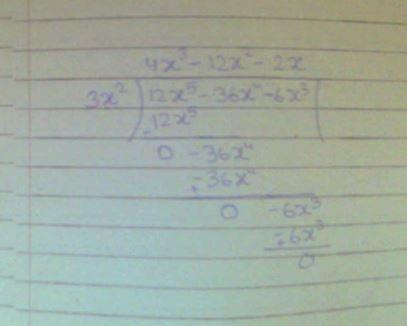 4x³ - 12x² - 2x
3x² ) 12x⁵ - 36x⁴ - 6x³ (
- 12x⁵
0 - 36x⁴
- 36x⁴
+
0 - 6x³
- 6x³
+
0